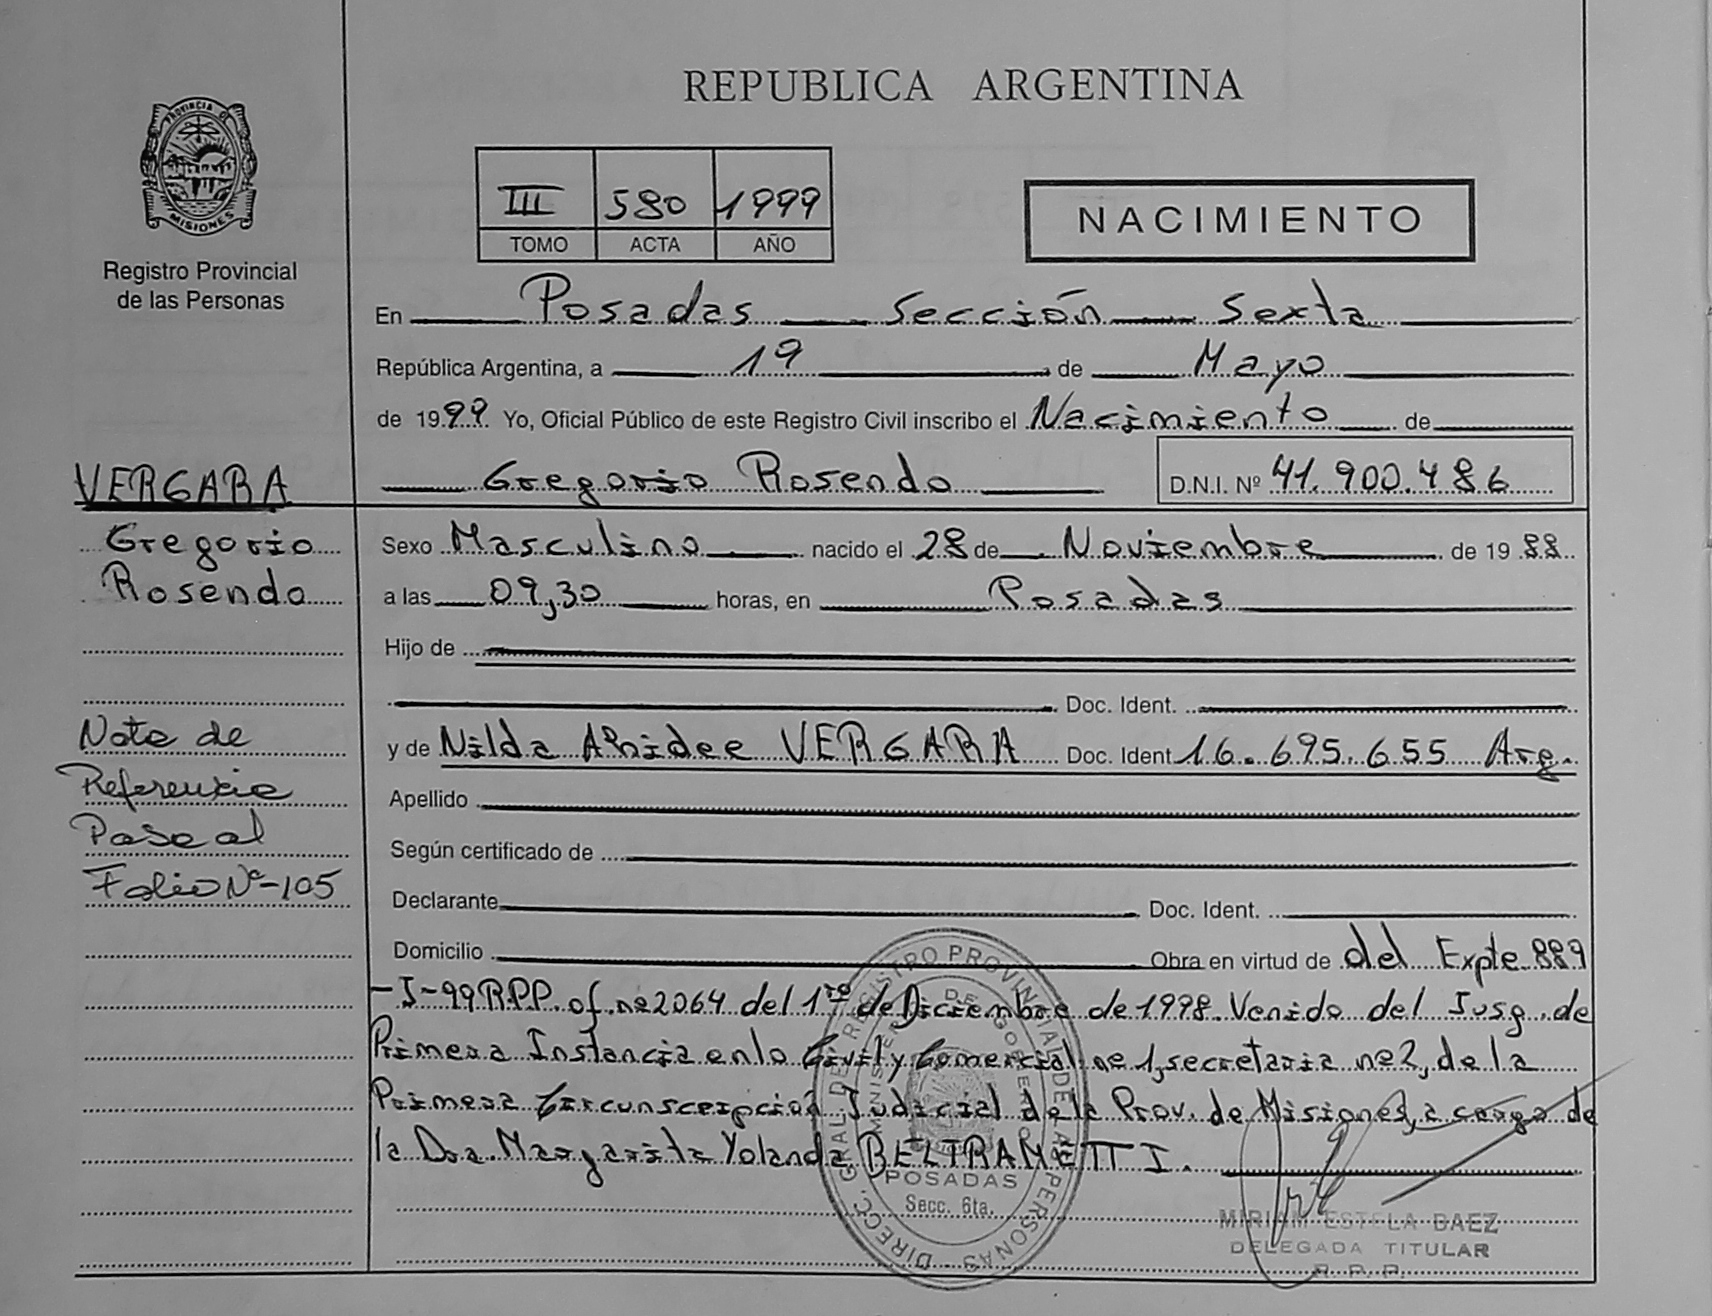 REPUBLICA ARGENTINA
PROVINCIA DE
MISIONES
Registro Provincial
de las Personas
III 580 1999
TOMO ACTA AÑO
NACIMIENTO
En Posadas Sección Sexta
República Argentina, a 19 de Mayo
de 1999 Yo, Oficial Público de este Registro Civil inscribo el Nacimiento de
VERGARA
Gregorio Rosendo D.N.I. Nº 41.900.486
Gregorio
Rosendo
Sexo Masculino nacido el 28 de Noviembre de 19 88
a las 09,30 horas, en Posadas
Hijo de
Doc. Ident.
Nota de
Referencia
Pase al
Folio Nº-105
y de Nilda Ahidee VERGARA Doc. Ident 16.695.655 Arg.
Apellido
Según certificado de
Declarante Doc. Ident.
Domicilio Obra en virtud de del Expte 889
-I-99 R.P.P. of. nº 2064 del 1ro de Diciembre de 1998. Venido del Jusg. de
Primera Instancia en lo Civil y Comercial nº 1, secretaria nº 2, de la
Primera Circunscripcion Judicial de la Prov. de Misiones, a cargo de
la Dra. Margarita Yolanda BELTRAMETTI.
DIRECC. GRAL DEL REGISTRO PROVINCIAL DE LAS PERSONAS
MINISTERIO DE GOBIERNO
POSADAS
Secc. 6ta.
MIRIAM ESTELA BAEZ
DELEGADA TITULAR
R. P. P.